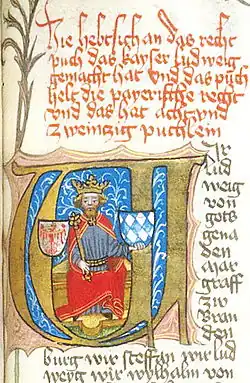 Hie hebt sich an das recht
puch das kayser ludweig
gemacht hat vnd das puch
helt die payerische recht
vnd das hat acht vnd
zweintzig puchlein
W Ir
lud
weig
von
gots
gena
den
Mar
graff
zw
Bran
den
burg wir steffan wir lud
weyg wir wylhalm von